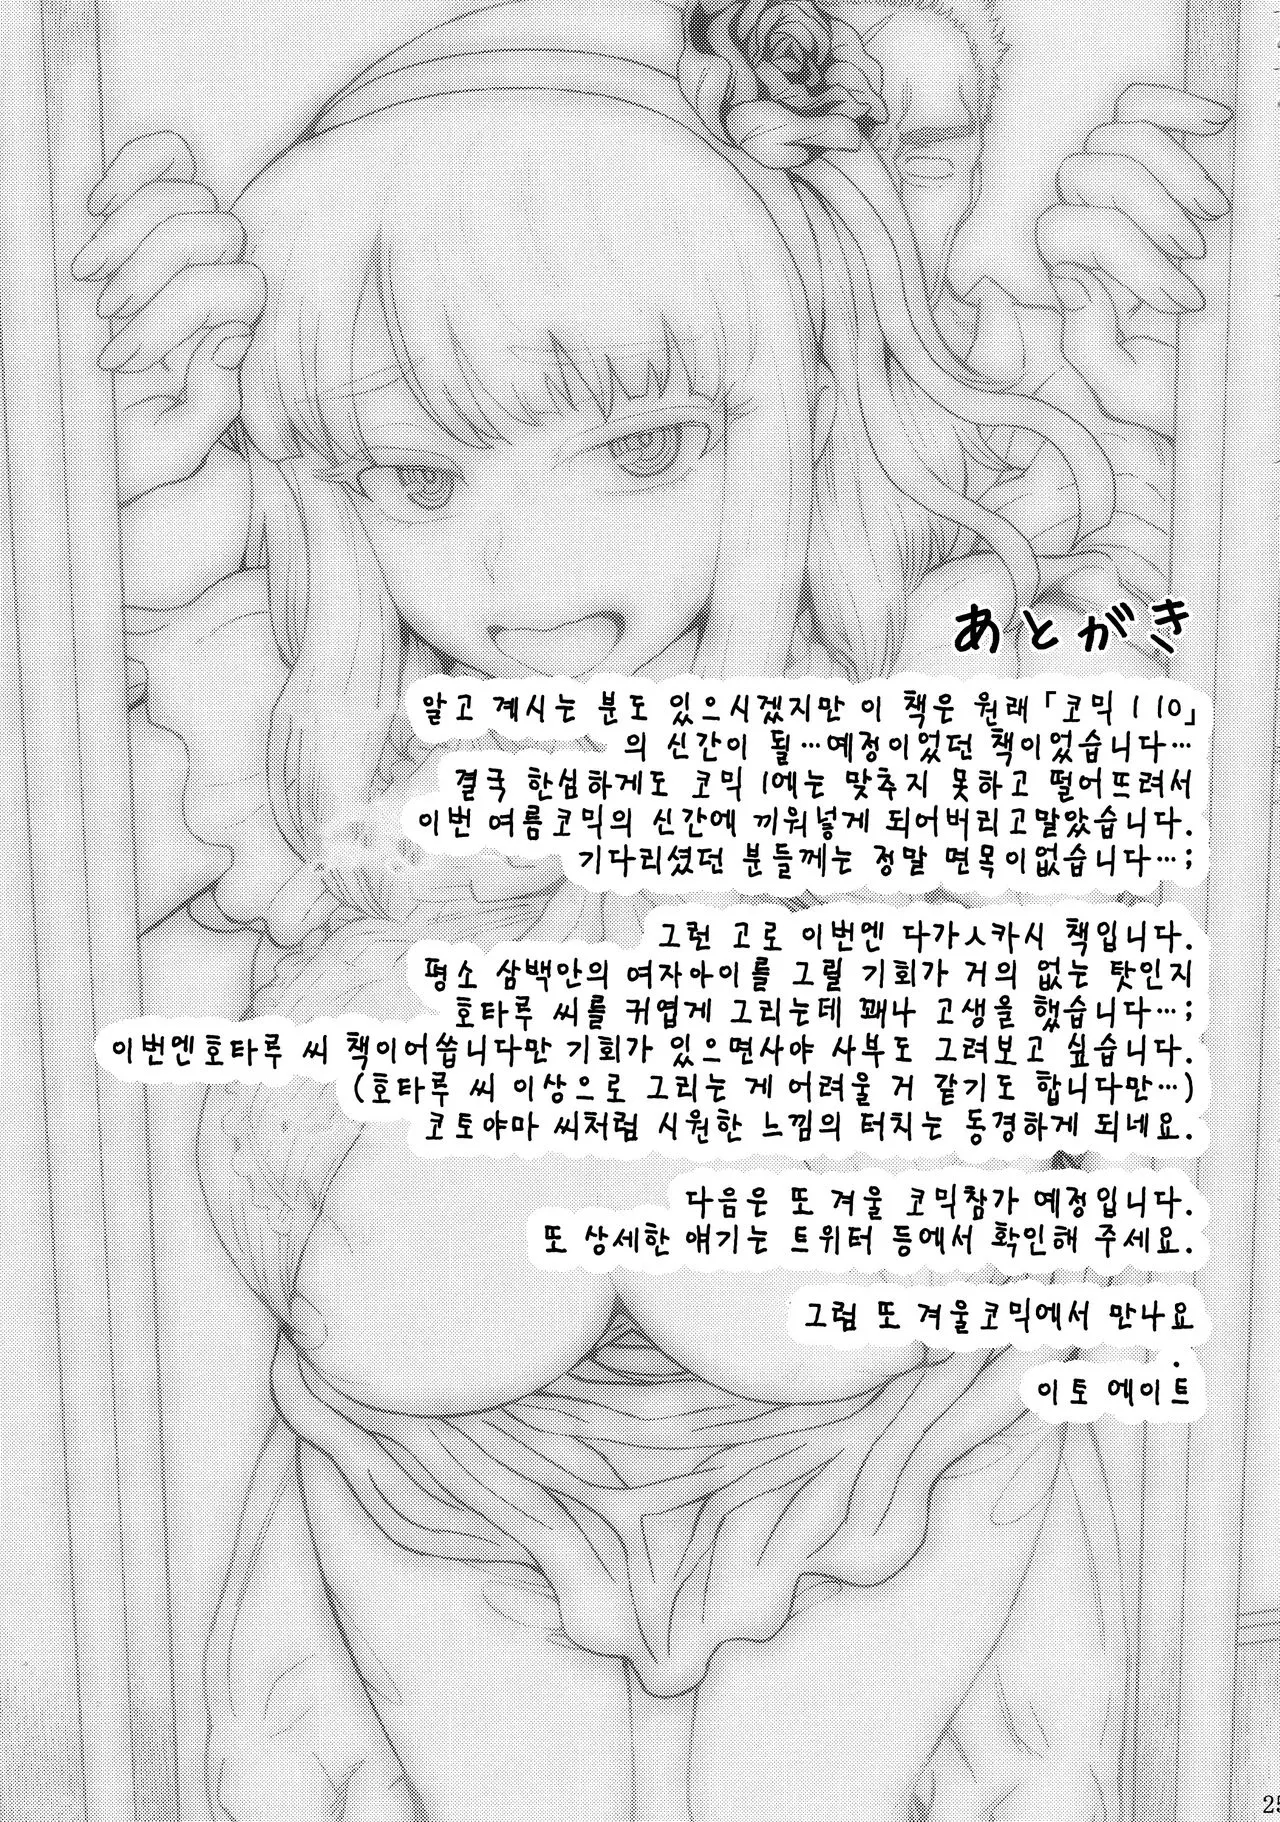 あとがき
알고 계시는 분도 있으시겠지만 이 책은 원래 「코믹 1 10」
의 신간이 될…예정이었던 책이었습니다…
결국 한심하게도 코믹 1에는 맞추지 못하고 떨어뜨려서
이번 여름코믹의 신간에 끼워넣게 되어버리고말았습니다.
기다리셨던 분들께는 정말 면목이없습니다…;
그런 고로 이번엔 다가ㅅ카시 책입니다.
평소 삼백안의 여자아이를 그릴 기회가 거의 없는 탓인지
호타루 씨를 귀엽게 그리는데 꽤나 고생을 했습니다…;
이번엔호타루 씨 책이어씁니다만 기회가 있으면사야 사부도 그려보고 싶습니다.
(호타루 씨 이상으로 그리는 게 어려울 거 같기도 합니다만…)
코토야마 씨처럼 시원한 느낌의 터치는 동경하게 되네요.
다음은 또 겨울 코믹참가 예정입니다.
또 상세한 얘기는 트위터 등에서 확인해 주세요.
그럼 또 겨울코믹에서 만나요
.
이토 에이트
25